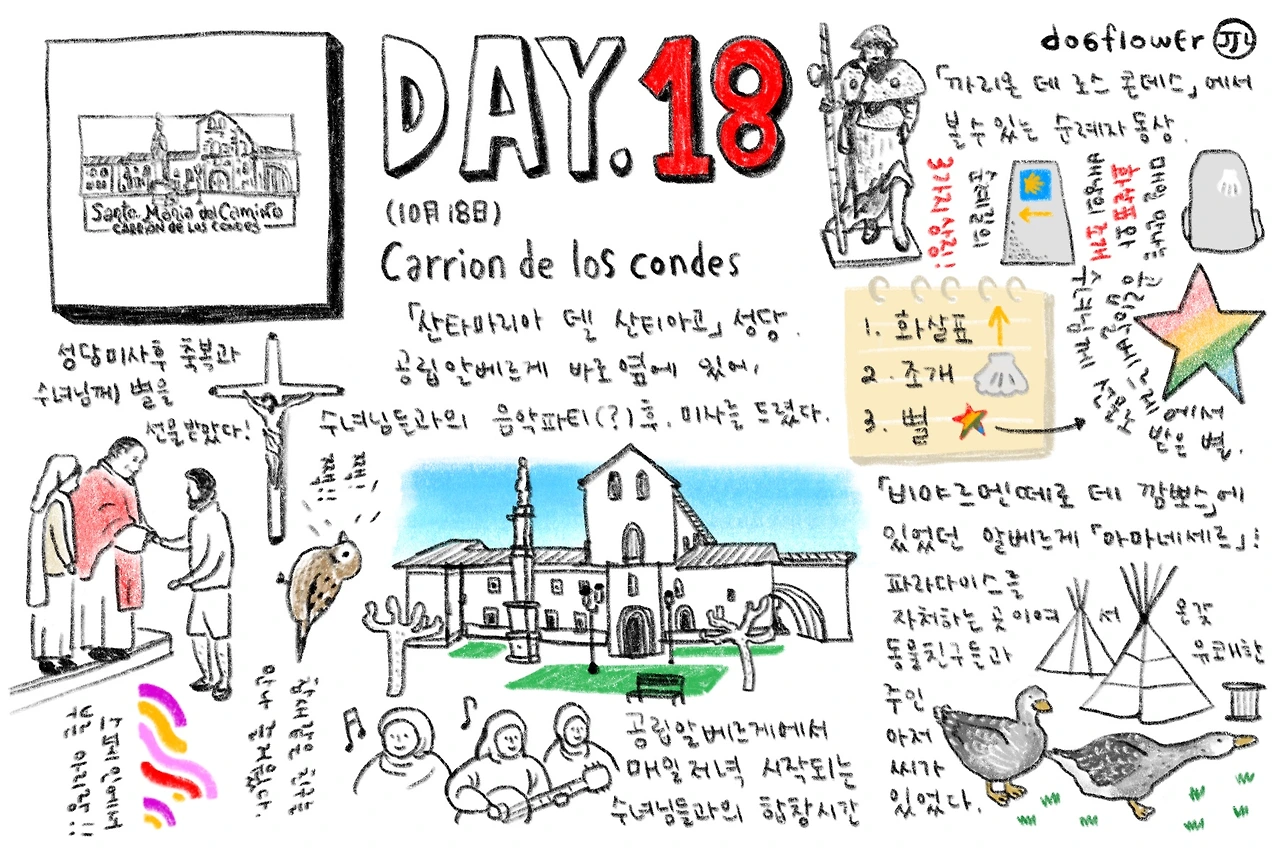 DAY.18
(10月18日)
Carrion de los condes
dogflower
JJL
Santa Maria del Camino
CARRIÓN DE LOS CONDES
「까리온 데 로스 콘데스」에서
볼 수 있는 순례자 동상.
3가지 상징!
순례길의
배낭의 조개
화살표와
1. 화살표
2. 조개
3. 별
수녀님께
선물로
에서
받은 별.
「산타마리아 델 산티아고」성당.
공립알베르게 바로 옆에 있어,
수녀님들과의 음악파티(?)후, 미사를 드렸다.
성당미사후 축복과
수녀님께) 별을
선물받았다!
짹!
짹!!
만나 즐거웠다.
스페인에서
부른 아리랑!!
공립알베르게에서
매일저녁 시작되는
수녀님들과의 합창시간
「비야르멘떼로 데 깜뽀스」에
있었던 알베르게 「아마네세르」!
파라다이스를
자처하는 곳이여서 온갖
동물친구들과 유쾌한
주인
아저
씨가
있었다.